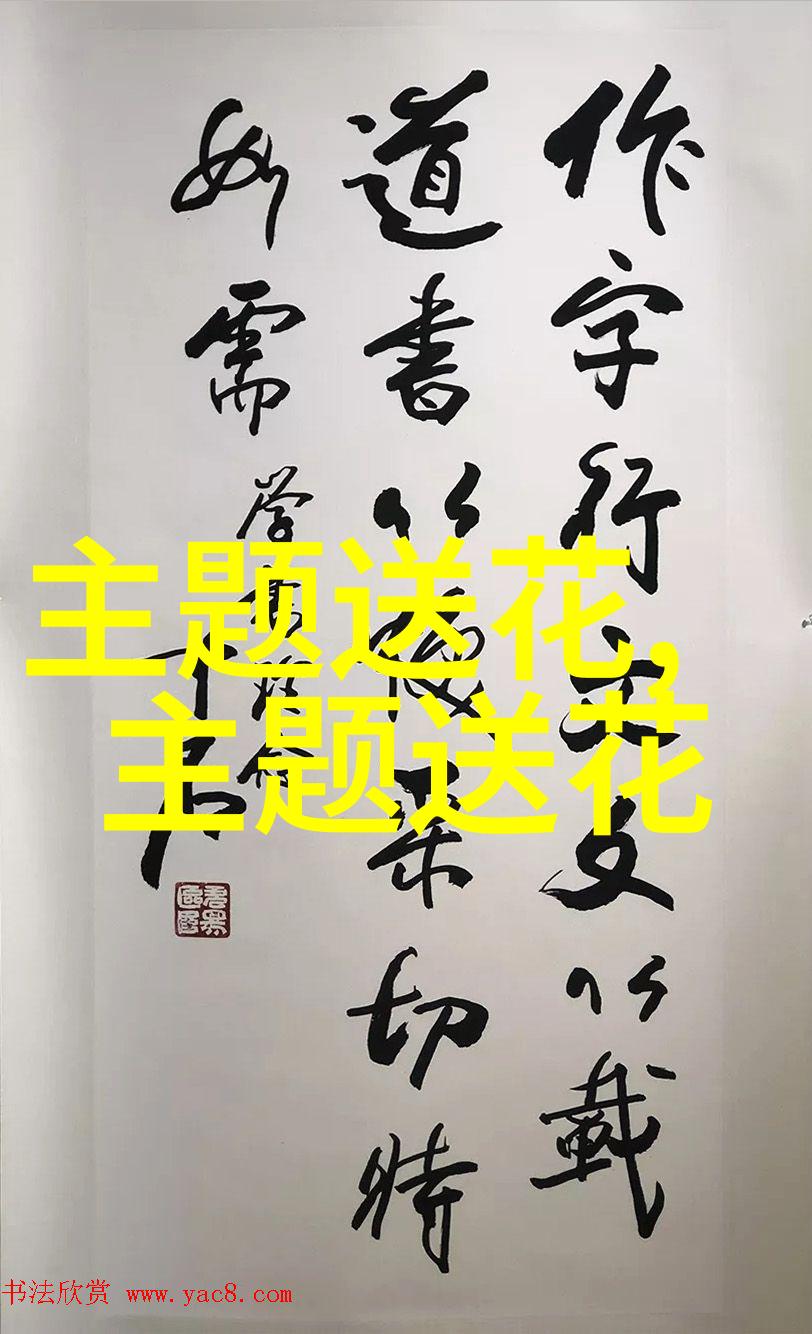 主题送花,
主题送花
作字行文文以載
道書以采切時
如需
学書
书法欣赏 www.yac8.com